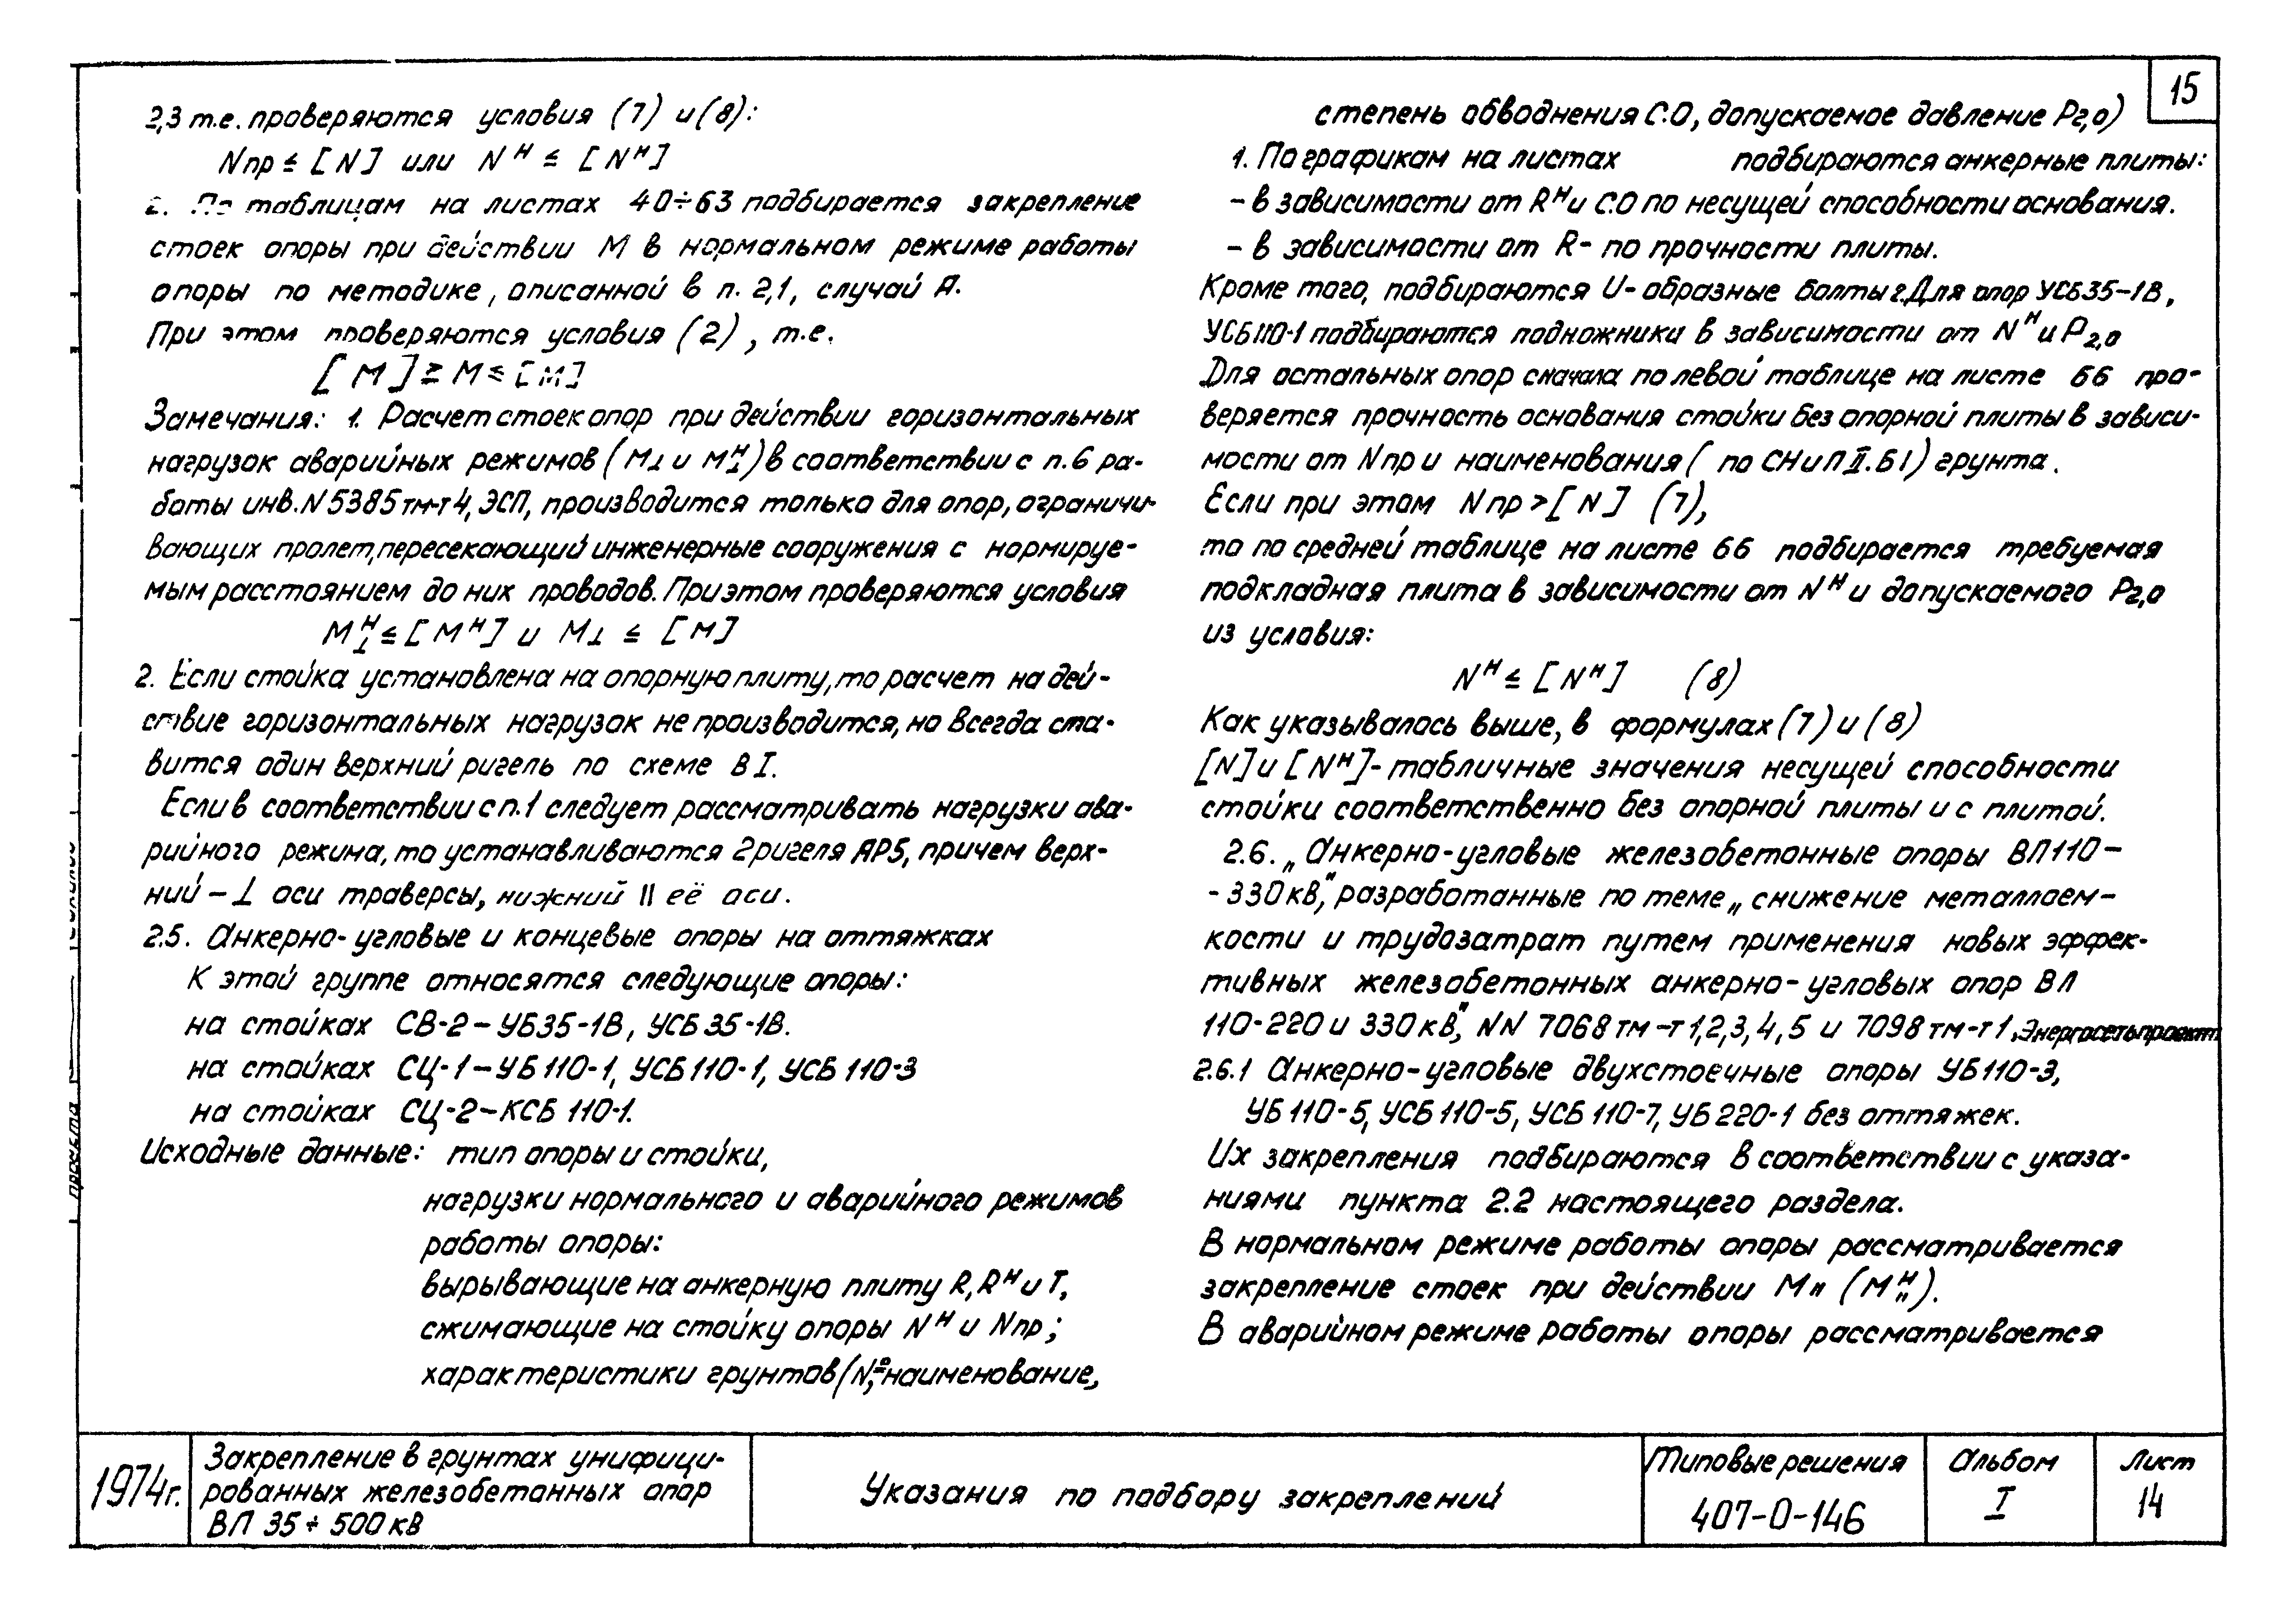 15
2,3 т.е. проверяются условия (7) и (8):
Nпр ≤ [N] или Nᴴ ≤ [Nᴴ]
2. По таблицам на листах 40÷63 подбирается закрепление
стоек опоры при действии М в нормальном режиме работы
опоры по методике, описанной в п. 2,1, случай А.
При этом проверяются условия (2), т.е.
[M] ≥ M ≤ [M]
Замечания: 1. Расчет стоек опор при действии горизонтальных
нагрузок аварийных режимов (М⊥ и М⊥ᴴ) в соответствии с п.6 ра-
боты инв. N 5385тм-т4, ЭСП, производится только для опор, ограничи-
вающих пролет, пересекающий инженерные сооружения с нормируе-
мым расстоянием до них проводов. При этом проверяются условия
М⊥ᴴ ≤ [Мᴴ] и М⊥ ≤ [М]
2. Если стойка установлена на опорную плиту, то расчет на дей-
ствие горизонтальных нагрузок не производится, но всегда ста-
вится один верхний ригель по схеме В I.
Если в соответствии с п.1 следует рассматривать нагрузки ава-
рийного режима, то устанавливаются 2 ригеля АР5, причем верх-
ний – ⊥ оси траверсы, нижний || её оси.
2.5. Анкерно-угловые и концевые опоры на оттяжках
К этой группе относятся следующие опоры:
на стойках СВ-2 – УБ35-1В, УСБ 35-1В.
на стойках СЦ-1 – УБ 110-1, УСБ 110-1, УСБ 110-3
на стойках СЦ-2 – КСБ 110-1.
Исходные данные: тип опоры и стойки,
нагрузки нормального и аварийного режимов
работы опоры:
вырывающие на анкерную плиту R, Rᴴ и Т,
сжимающие на стойку опоры Nᴴ и Nпр;
характеристики грунтов (№, наименование,
степень обводнения С.О, допускаемое давление Р2,0)
1. По графикам на листах подбираются анкерные плиты:
– в зависимости от Rᴴ и С.О по несущей способности основания.
– в зависимости от R – по прочности плиты.
Кроме того, подбираются U-образные болты г. Для опор УСБ35-1В,
УСБ110-1 подбираются подножники в зависимости от Nᴴ и Р2,0
Для остальных опор сначала по левой таблице на листе 66 про-
веряется прочность основания стойки без опорной плиты в зависи-
мости от Nпр и наименования (по СНиП II.Б1) грунта.
Если при этом Nпр > [N] (7),
то по средней таблице на листе 66 подбирается требуемая
подкладная плита в зависимости от Nᴴ и допускаемого Р2,0
из условия:
Nᴴ ≤ [Nᴴ] (8)
Как указывалось выше, в формулах (7) и (8)
[N] и [Nᴴ] – табличные значения несущей способности
стойки соответственно без опорной плиты и с плитой.
2.6. „Анкерно-угловые железобетонные опоры ВЛ110–
-330кВ", разработанные по теме „снижение металлоем–
кости и трудозатрат путем применения новых эффек-
тивных железобетонных анкерно-угловых опор ВЛ
110-220 и 330кВ", NN 7068тм-т1,2,3,4,5 и 7098тм-т1, Энергосетьпроект
2.6.1 Анкерно-угловые двухстоечные опоры УБ110-3,
УБ 110-5, УСБ 110-5, УСБ 110-7, УБ 220-1 без оттяжек.
Их закрепления подбираются в соответствии с указа-
ниями пункта 2.2 настоящего раздела.
В нормальном режиме работы опоры рассматривается
закрепление стоек при действии М॥ (М॥ᴴ).
В аварийном режиме работы опоры рассматривается
проекта
1974г.
Закрепление в грунтах унифици-
рованных железобетонных опор
ВЛ 35 ÷ 500кВ
Указания по подбору закреплений
Типовые решения
407-0-146
Альбом
I
Лист
14